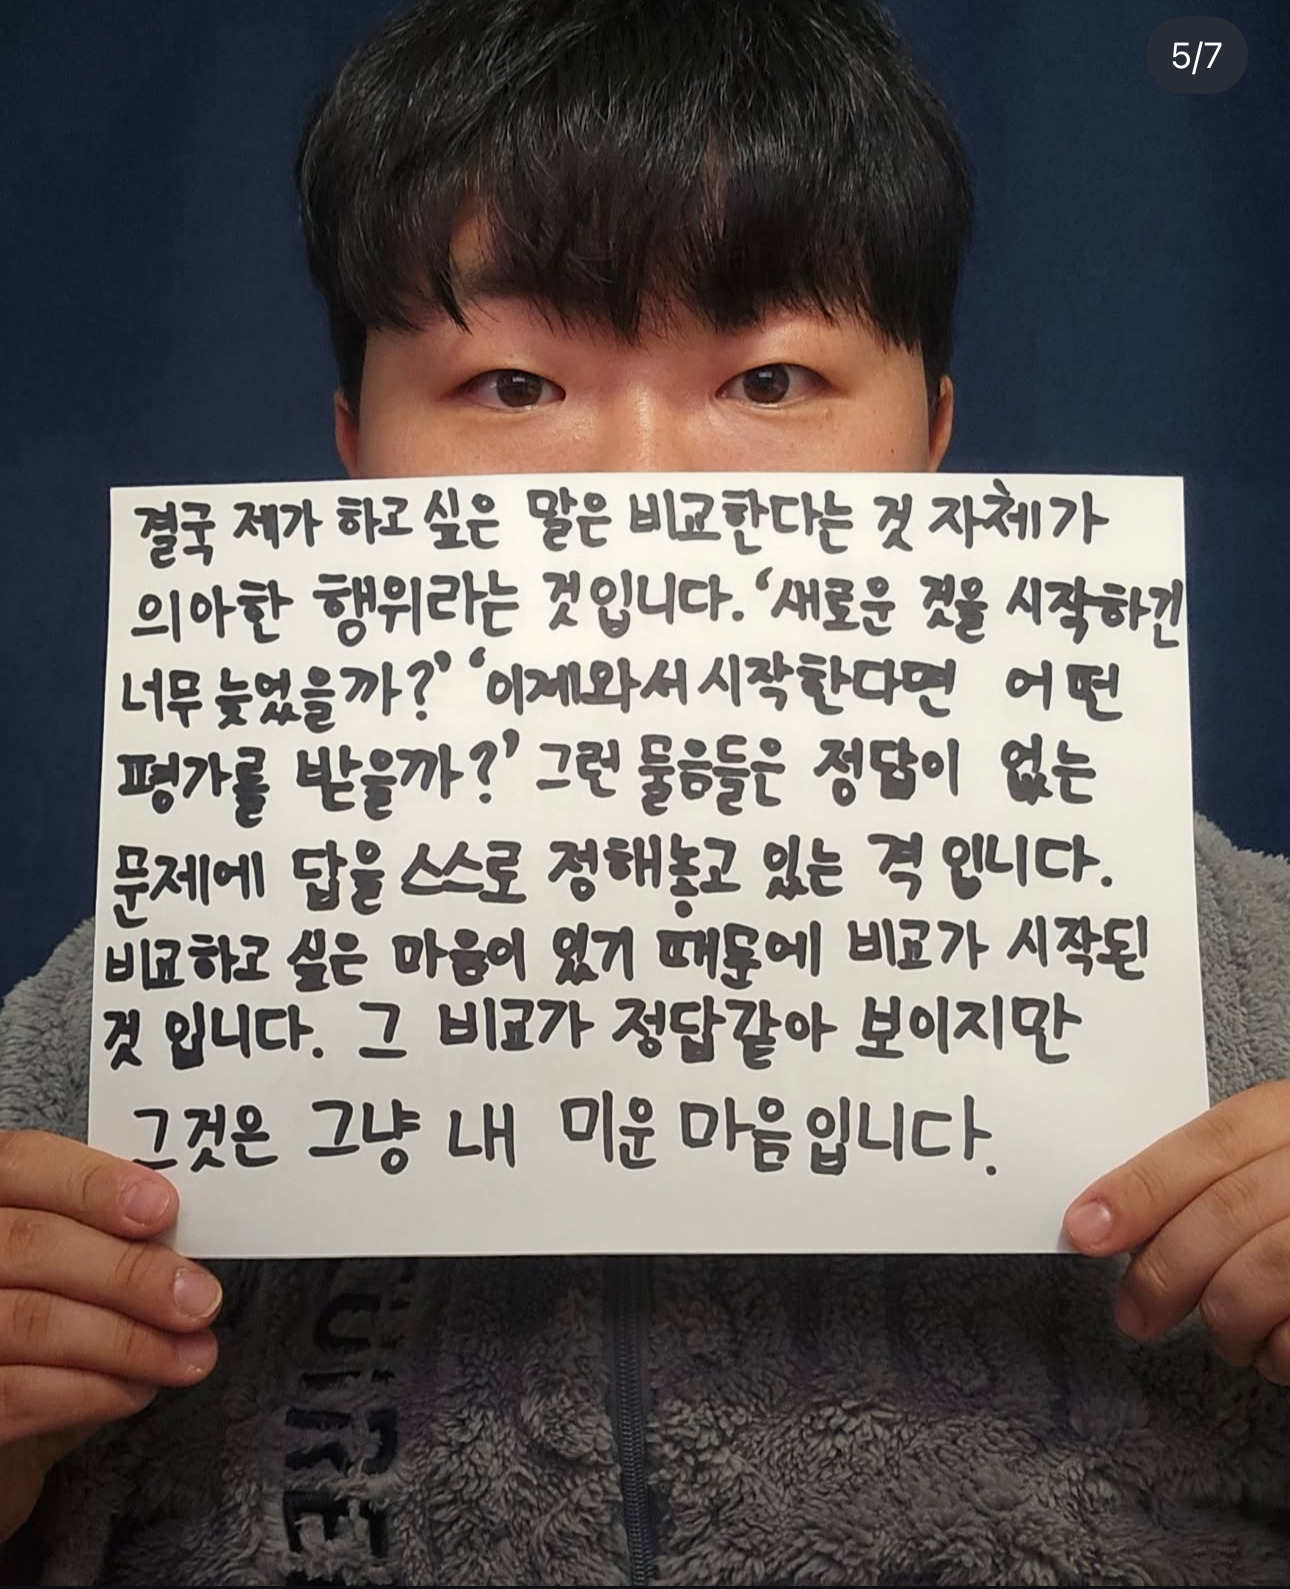 5/7
결국 제가 하고 싶은 말은 비교한다는 것 자체가
의아한 행위라는 것입니다. ‘새로운 것을 시작하긴
너무 늦었을까?’ ‘이제와서 시작한다면 어떤
평가를 받을까?’ 그런 물음들은 정답이 없는
문제에 답을 스스로 정해놓고 있는 격 입니다.
비교하고 싶은 마음이 있기 때문에 비교가 시작된
것 입니다. 그 비교가 정답같아 보이지만
그것은 그냥 내 미운 마음입니다.